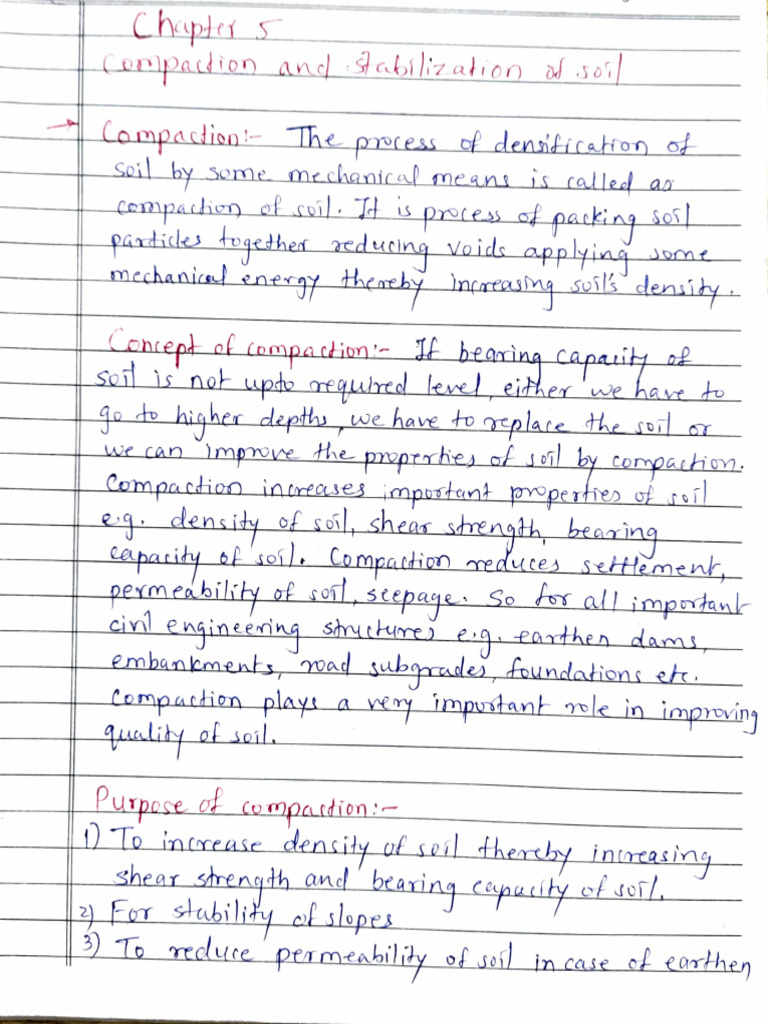 Chapter 5
Compaction and stabilization of soil
→ Compaction:- The process of densification of
soil by some mechanical means is called as
compaction of soil. It is process of packing soil
particles together reducing voids applying some
mechanical energy thereby increasing soil's density.
Concept of compaction:- If bearing capacity of
soil is not upto required level, either we have to
go to higher depths, we have to replace the soil or
we can improve the properties of soil by compaction.
Compaction increases important properties of soil
e.g. density of soil, shear strength, bearing
capacity of soil. Compaction reduces settlement,
permeability of soil, seepage. So for all important
civil engineering structures e.g. earthen dams,
embankments, road subgrades, foundations etc.
Compaction plays a very important role in improving
quality of soil.
Purpose of compaction:-
1) To increase density of soil thereby increasing
shear strength and bearing capacity of soil.
2) For stability of slopes
3) To reduce permeability of soil in case of earthen